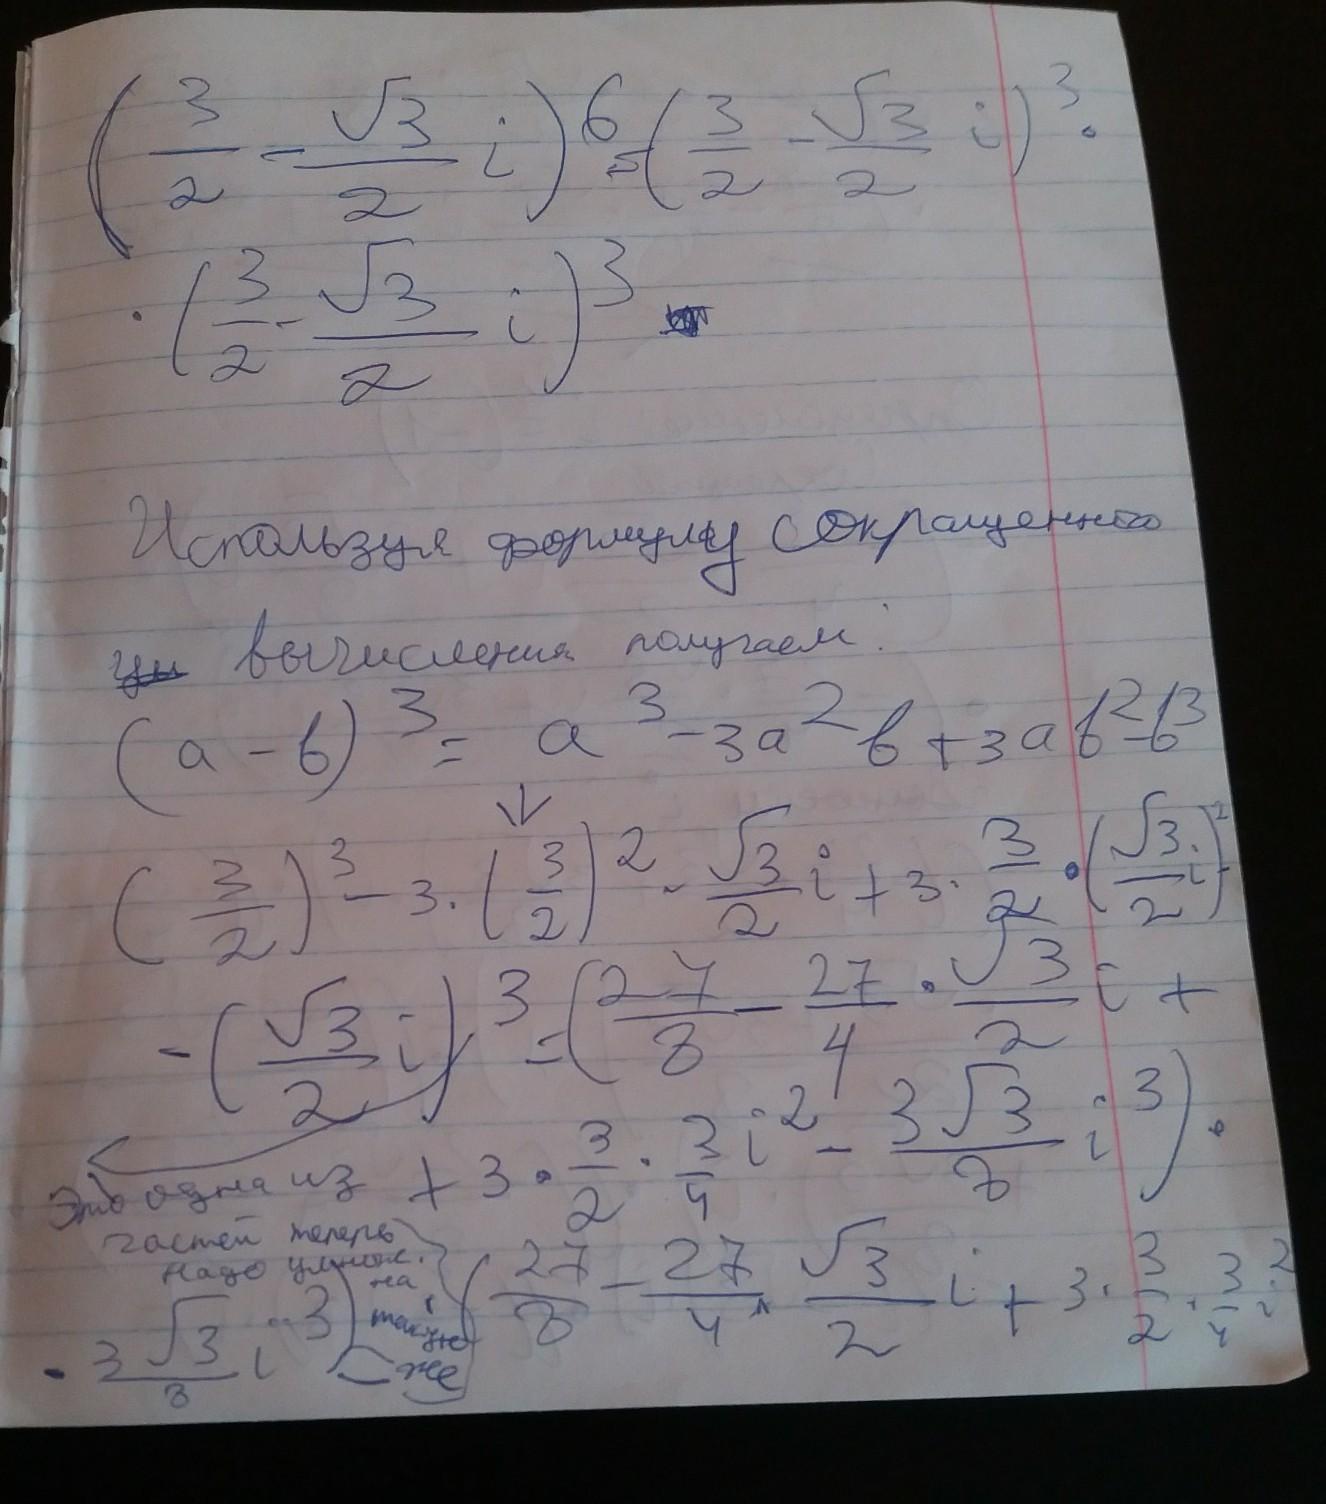 (3/2 - √3/2 i)^6 = (3/2 - √3/2 i)^3 ·
· (3/2 - √3/2 i)^3
Используя формулу сокращенного
вычисления получаем:
(a - b)^3 = a^3 - 3a^2b + 3ab^2 - b^3
↓
(3/2)^3 - 3 · (3/2)^2 · √3/2 i + 3 · 3/2 · (√3/2 i)^2
- (√3/2 i)^3 = (27/8 - 27/4 · √3/2 i +
+ 3 · 3/2 · 3/4 i^2 - 3√3/8 i^3) ·
Это одна из
частей теперь
надо умнож.
на
такую
же
(27/8 - 27/4 · √3/2 i + 3 · 3/2 · 3/4 i^2
- 3√3/8 i^3)